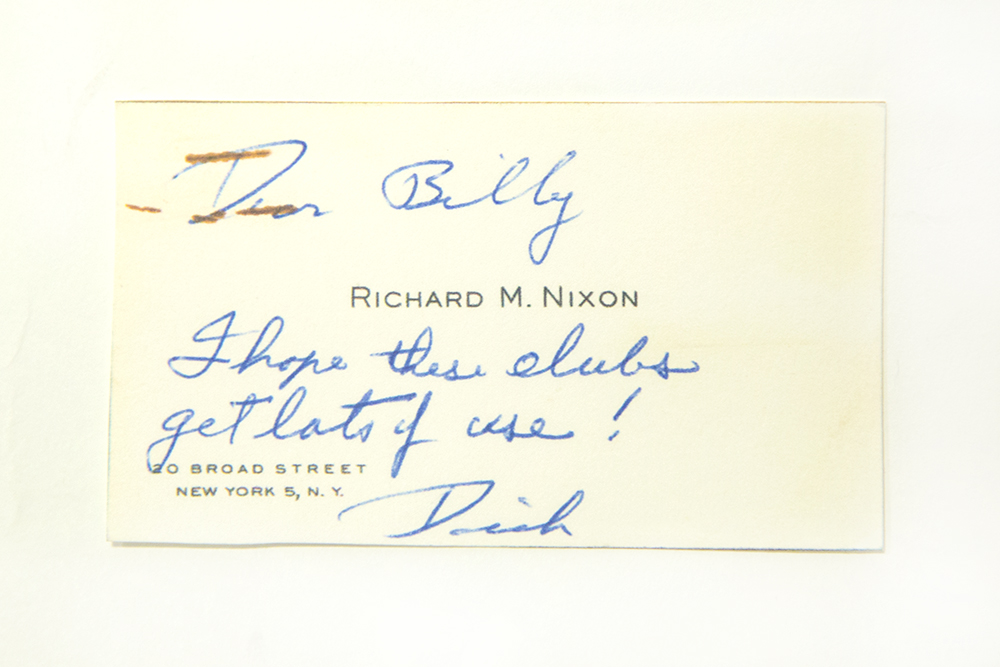 Dear Billy
RICHARD M. NIXON
I hope these clubs
get lots of use!
20 BROAD STREET
NEW YORK 5, N. Y.
Dick